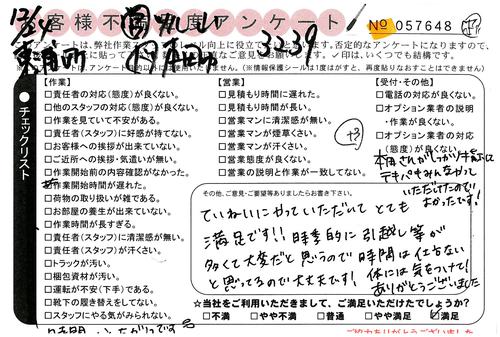 お客様不満度アンケート
No 057648
12/24
3239
アンケートは、弊社作業ス
のレベル向上に役立て
と思います。否定的なアンケートになりますので、
✓印は、いくつでも結構です。
(※情報保護シールは1度はがすと、再度貼りなおすことはできません)
●チェックリスト
【作業】
□責任者の対応(態度)が良くない。
□他のスタッフの対応(態度)が良くない。
□作業を見ていて不安がある。
□責任者(スタッフ)に好感が持てない。
□お客様への挨拶が出来ていない。
□ご近所への挨拶・気遣いが無い。
□作業開始前の内容確認がなかった。
作業開始時間が遅れた。
□荷物の取り扱いが雑である。
□お部屋の養生が出来ていない。
□作業時間が長すぎる。
□責任者(スタッフ)に清潔感が無い。
□責任者(スタッフ)が汗くさい。
□トラックが汚い。
□梱包資材が汚い。
□運転が不安(下手)である。
□靴下の履き替えをしてない。
□スタッフにやる気がみられない。
【営業】
□見積もりに遅れた。
□見積もり時間が長い。
□営業マンに清潔感が無い。
□営業マンが煙草くさい。
□営業マンが汗くさい。
□営業態度が良くない。
□営業の説明と作業が一致してない。
+3
【受付・その他】
□電話の対応が良くない。
□オプション業者の説明
・作業が良くない。
□オプション業者の対応
(態度)が良くない。
テキパキみんなやって
いただけたので
よかったです!
その他、ご意見・ご要望等ありましたらお書き下さい。
ていねいにやっていただいてとても
満足です!! 時季的に引越し等が
多くて大変だと思うので時間は仕方ない
と思ってるので大丈夫です! 体には気をつけて!
ありがとうございました
☆当社をご利用いただきまして、ご満足いただけたでしょうか?
□不満 □やや不満 □普通 □やや満足 ☑満足
ご協力ありがとうございました